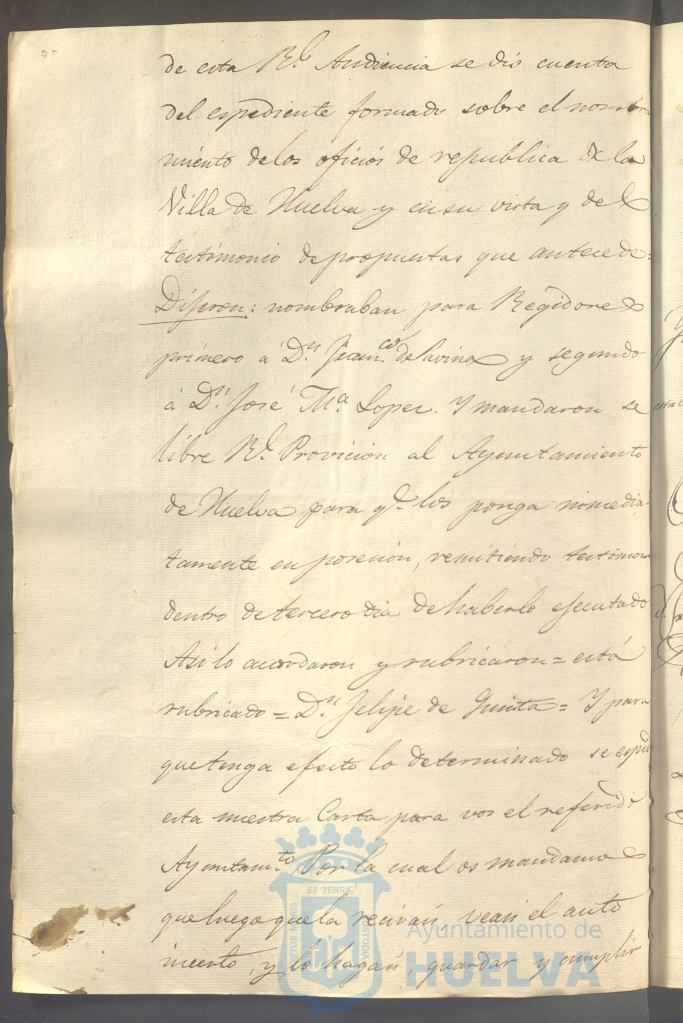 de esta Rl. Audiencia se dió cuenta
del espediente formado sobre el nombra
miento de los oficios de republica de la
Villa de Huelva y en su vista y del
testimonio de propuestas que antecede=
Dijeron: nombraban para Regidores
primero á Dn. Franco. de la
y segundo
á Dn. José Ma. Lopez. Y mandaron se
libre Rl. Provicion al Ayuntamiento
de Huelva para qe. los ponga inmedia
tamente en posecion, remitiendo testimon
dentro de tercero dia de haberlo ejecutado
Asi lo acordaron y rubricaron = está
rubricado = Dn. Felipe de = Y para
que tenga efecto lo determinado se espi
esta nuestra Carta para vos el referido
Ayuntamto. Por la cual os mandamos
que luego que la recivais, veais el auto
incerto, y lo hagais, guardar y cumplir
Ayuntamiento de
HUELVA